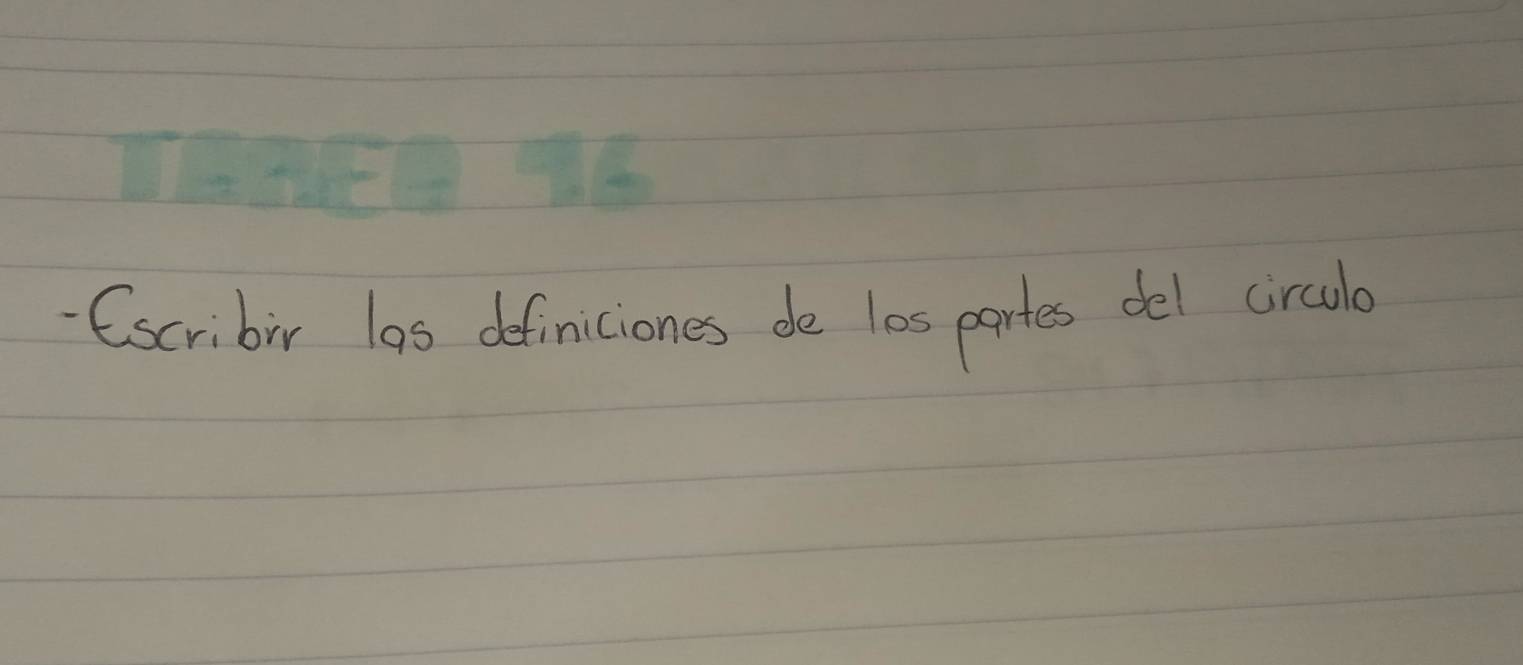 TAREA 16
-Escribir las definiciones de los partes del circulo